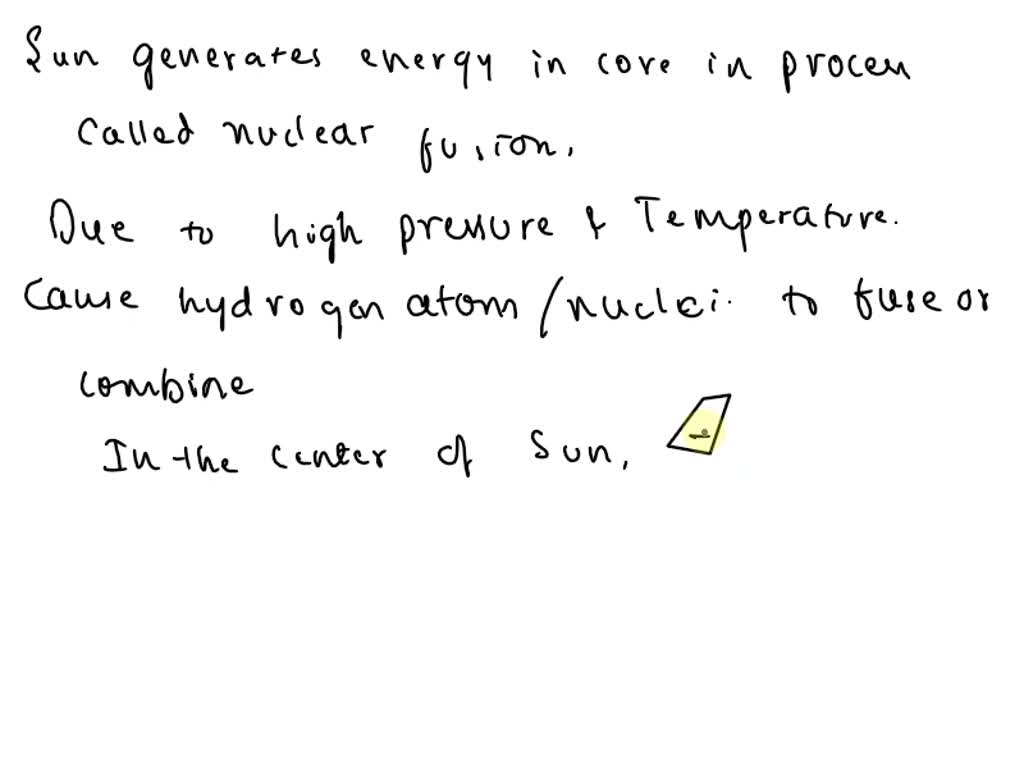 Sun generates energy in core in process
called nuclear fusion.
Due to high pressure & Temperature.
Cause hydrogen atom / nuclei to fuse or
combine
In the center of Sun,